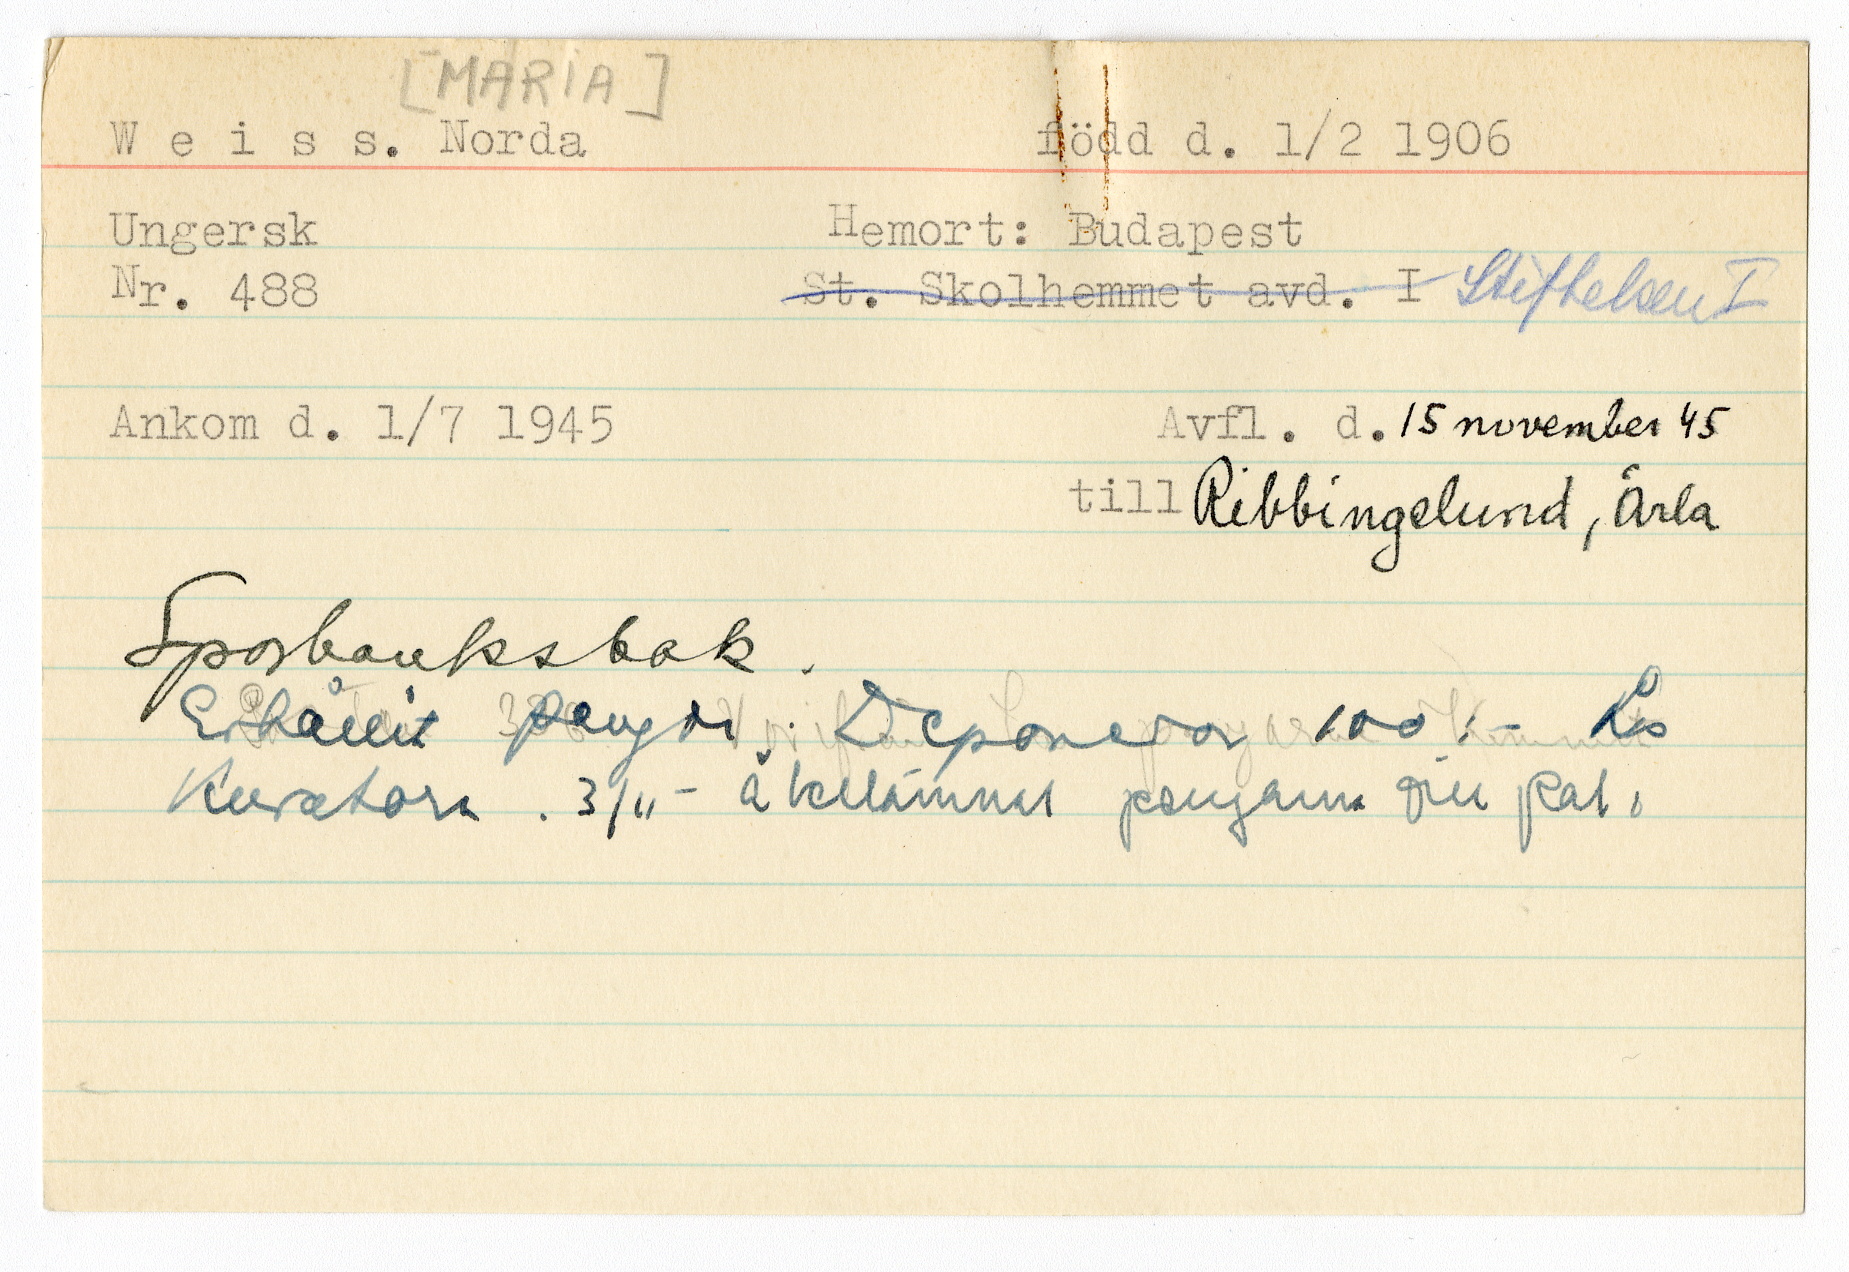 [MARIA]
W e i s s. Norda född d. 1/2 1906
Ungersk Hemort: Budapest
Nr. 488 St. Skolhemmet avd. I Stiftelsen I
Ankom d. 1/7 1945 Avfl. d. 15 november 45
till Ribbingelund, Ärla
Sparbanksbok.
Erhållit pengar. Deponerar 100:- hos
Kuratorn. 3/11 - återlämnat pengarna till pat.